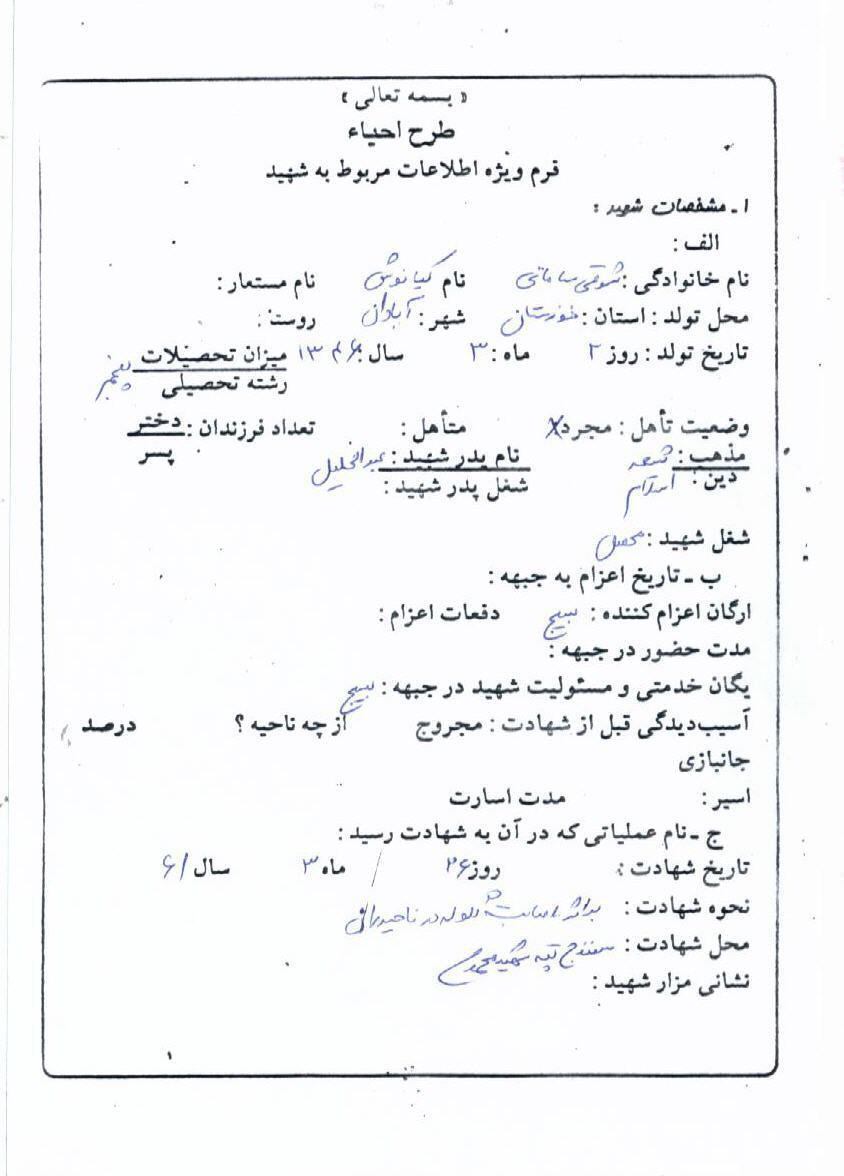 « بسمه تعالی »
طرح احیاء
فرم ویژه اطلاعات مربوط به شهید
۱ـ مشخصات شهید :
الف :
نام خانوادگی : شوقی سامانی نام کیانوش نام مستعار :
محل تولد : استان : خوزستان شهر : آبادان روستا :
تاریخ تولد : روز ۲ ماه : ۳ سال : ۱۳۴۶ میزان تحصیلات پنجم
رشته تحصیلی
وضعیت تأهل : مجرد X متأهل : تعداد فرزندان : دختر
پسر
مذهب : شیعه نام پدر شهید : عبدالجلیل
دین : اسلام شغل پدر شهید :
شغل شهید : محصل
ب ـ تاریخ اعزام به جبهه :
ارگان اعزام کننده : بسیج دفعات اعزام :
مدت حضور در جبهه :
یگان خدمتی و مسئولیت شهید در جبهه : بسیج
آسیب‌دیدگی قبل از شهادت : مجروح از چه ناحیه ؟ درصد
جانبازی
اسیر : مدت اسارت
ج ـ نام عملیاتی که در آن به شهادت رسید :
تاریخ شهادت : روز ۲۶ / ماه ۳ سال ۶۱
نحوه شهادت : براثر اصابت گلوله در ناحیه ران
محل شهادت : سنندج تپه شهید محمدی
نشانی مزار شهید :
۱